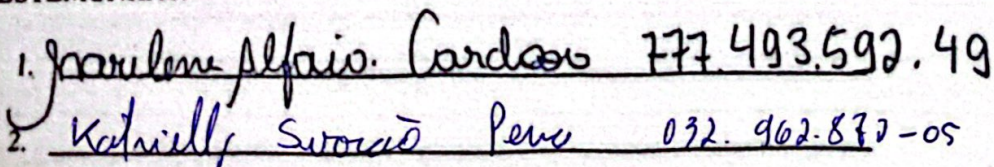 1. Marilene Alfaio. Cardoso 777.493.592.49
2. Katrielly Pena 032.962.872-05